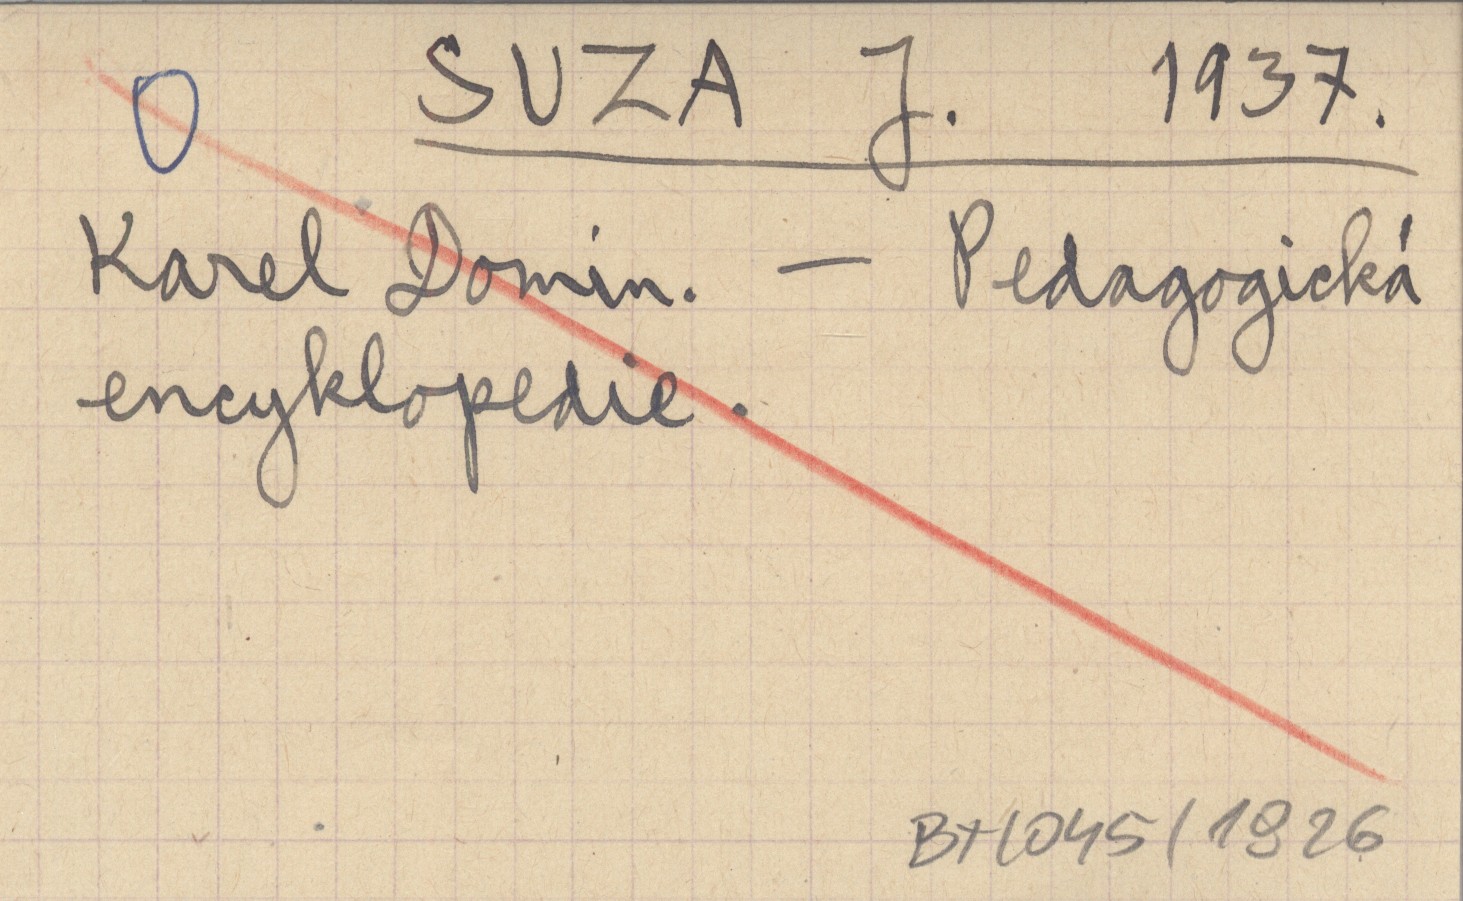 0 SUZA J. 1937.
Karel Domin. — Pedagogická
encyklopedie.
BH(045/1926